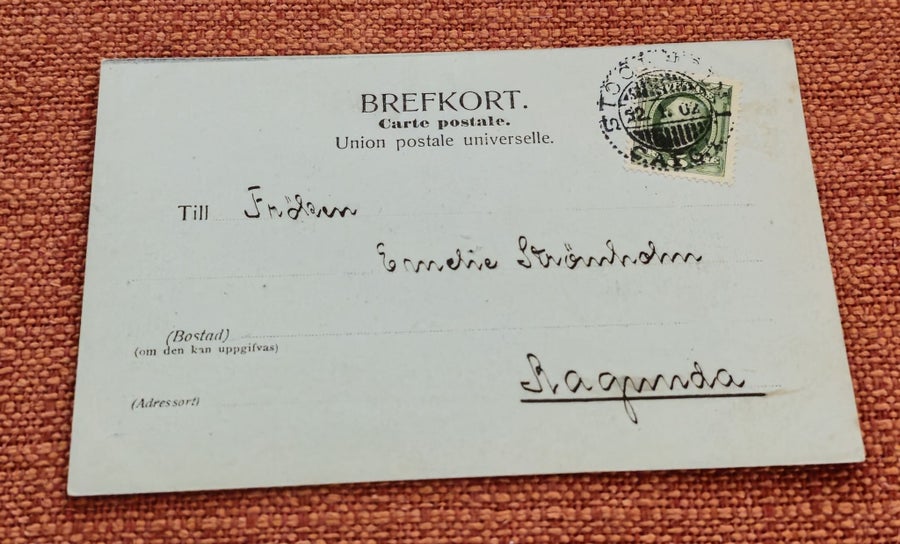 BREFKORT.
Carte postale.
Union postale universelle.
Till Fröken
Emelie Strömholm
(Bostad)
(om den kan uppgifvas)
Ragunda
(Adressort)